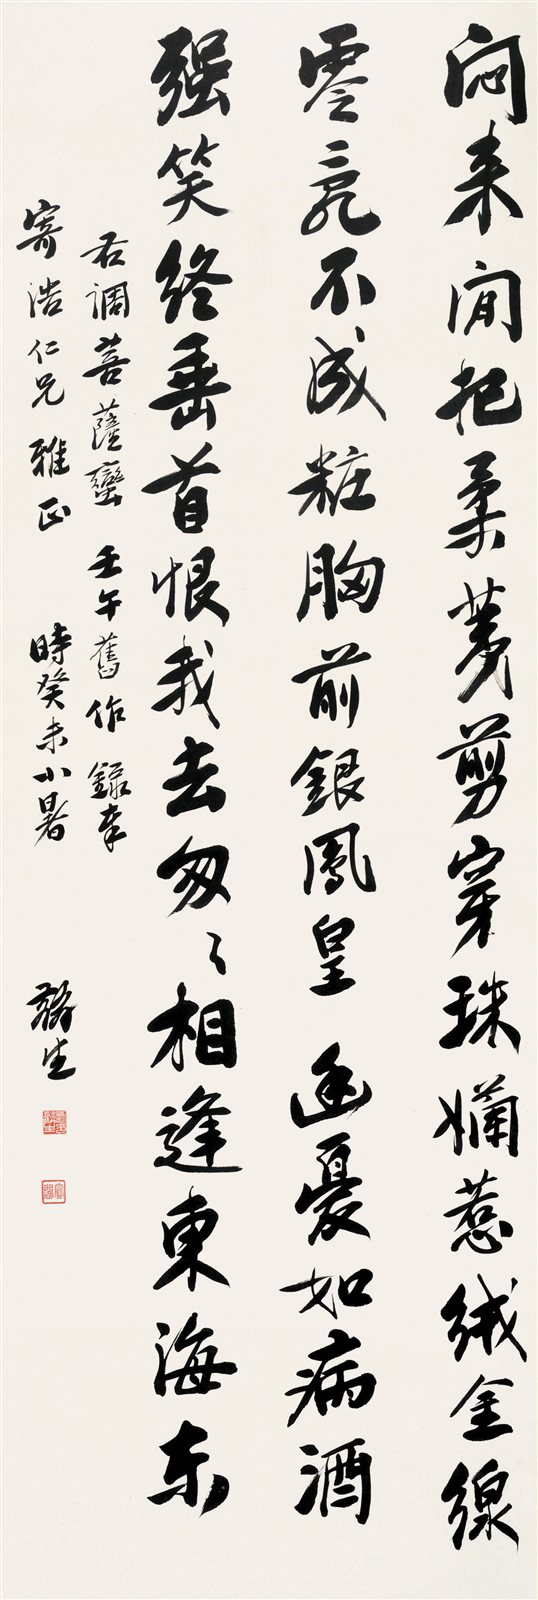 闷来閒把柔荑剪穿珠嬾惹絨金線
零亂不成粧胸前銀鳳皇 幽憂如病酒
强笑终垂首恨我去匆々相逢東海东
右調菩薩蠻 壬午舊作 録奉
寄浩仁兄雅正 時癸未小暑